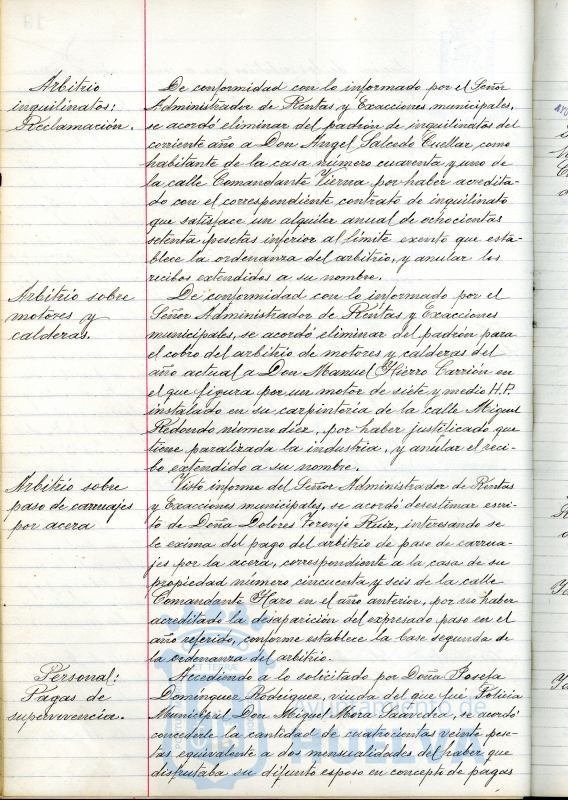 Arbitrio
inquilinatos:
Reclamación.
De conformidad con lo informado por el Señor
Administrador de Rentas y Exacciones municipales,
se acordó eliminar del padrón de inquilinatos del
corriente año a Don Angel Salcedo Cuellar, como
habitante de la casa número cuarenta y uno de
la calle Comandante Vierna por haber acredita-
do con el correspondiente contrato de inquilinato
que satisface un alquiler anual de ochocientas
setenta pesetas inferior al límite exento que esta-
blece la ordenanza del arbitrio, y anular los
recibos extendidos a su nombre.
Arbitrio sobre
motores y
calderas.
De conformidad con lo informado por el
Señor Administrador de Rentas y Exacciones
municipales, se acordó eliminar del padrón para
el cobro del arbitrio de motores y calderas del
año actual a Don Manuel Hierro Carrión en
el que figura por un motor de siete y medio H.P.
instalado en su carpintería de la calle Miguel
Redondo número diez, por haber justificado que
tiene paralizada la industria, y anular el reci-
bo extendido a su nombre.
Arbitrio sobre
paso de carruajes
por acera
Visto informe del Señor Administrador de Rentas
y Exacciones municipales, se acordó desestimar escri-
to de Doña Dolores Ruiz, interesando se
le exima del pago del arbitrio de paso de carrua-
jes por la acera, correspondiente a la casa de su
propiedad número cincuenta y seis de la calle
Comandante Haro en el año anterior, por no haber
acreditado la desaparición del expresado paso en el
año referido, conforme establece la base segunda de
la ordenanza del arbitrio.
Personal:
Pagas de
supervivencia.
Accediendo a lo solicitado por Doña Josefa
Domínguez Rodríguez, viuda del que fué Policía
Municipal Don Miguel Mora Saavedra, se acordó
concederle la cantidad de cuatrocientas veinte pese-
tas equivalente a dos mensualidades del haber que
disfrutaba su difunto esposo en concepto de pagas
Ayuntamiento de
HUELVA